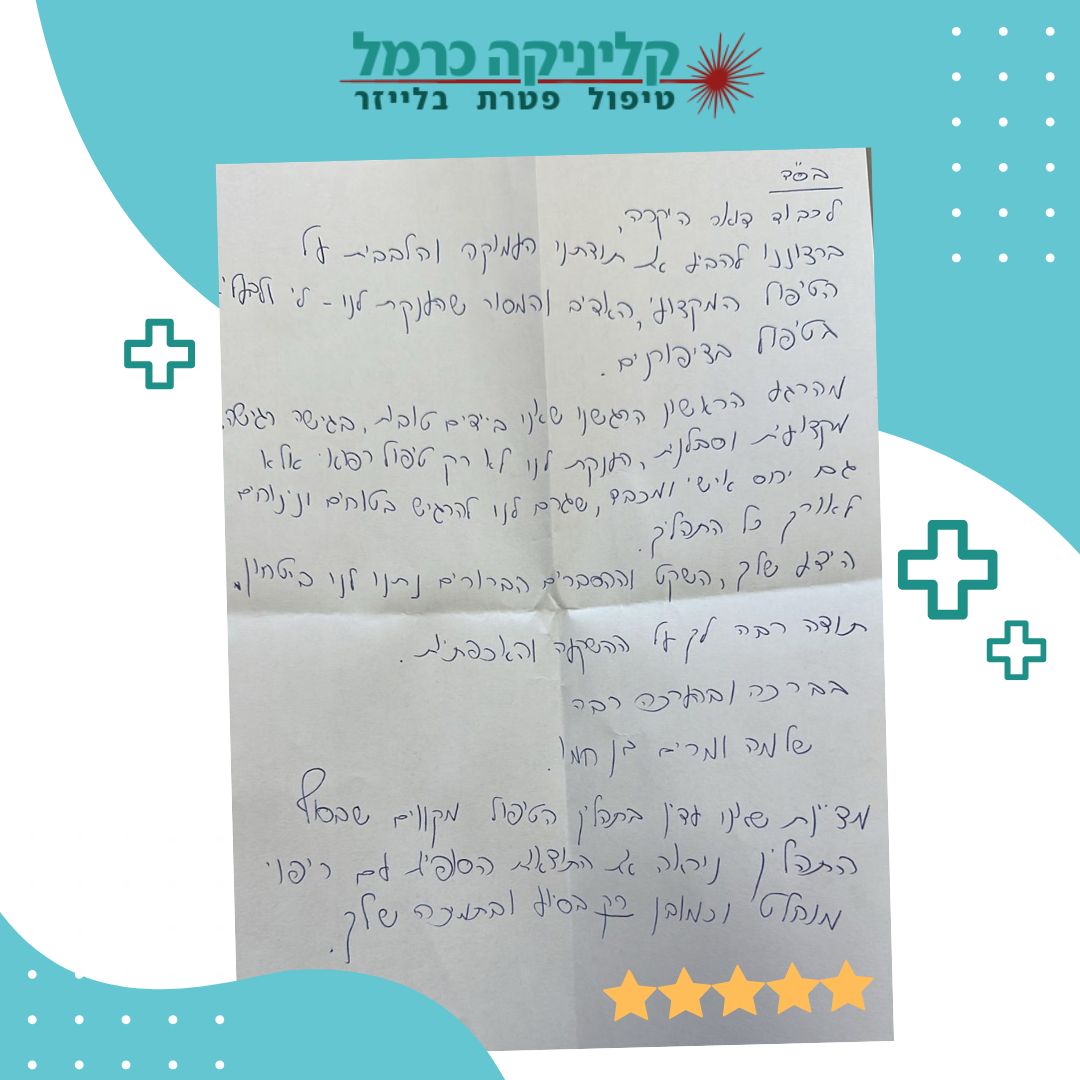 קליניקה כרמל
טיפול פטרת בלייזר
בס"ד
לכבוד דואר היקרה,
ברצוננו להביע את תודתנו העמוקה והלבבית על
הטיפול המקצועי, האדיב והמסור שהענקת לנו - לי ולבעלי -
בטיפול בציפורניים.
מהרגע הראשון הרגשנו שאנו בידיים טובות, בגישה רגישה,
מקצועית וסבלנית, הענקת לנו לא רק טיפול רפואי אלא
גם יחס אישי ומכבד, שגרם לנו להרגיש בטוחים ונינוחים
לאורך כל התהליך.
הידע שלך, השקט וההסברים הברורים נתנו לנו ביטחון.
תודה רבה לך על ההשקעה והאכפתיות.
בברכה ובהערכה רבה
שלמה ומרים בן חמו.
מציינת שאנו עדין בתהליך הטיפול מקווים שבסוף
התהליך ניראה את התוצאות הסופיות עם ריפוי
מוחלט וכמובן רק בסיוע ובתמיכה שלך.